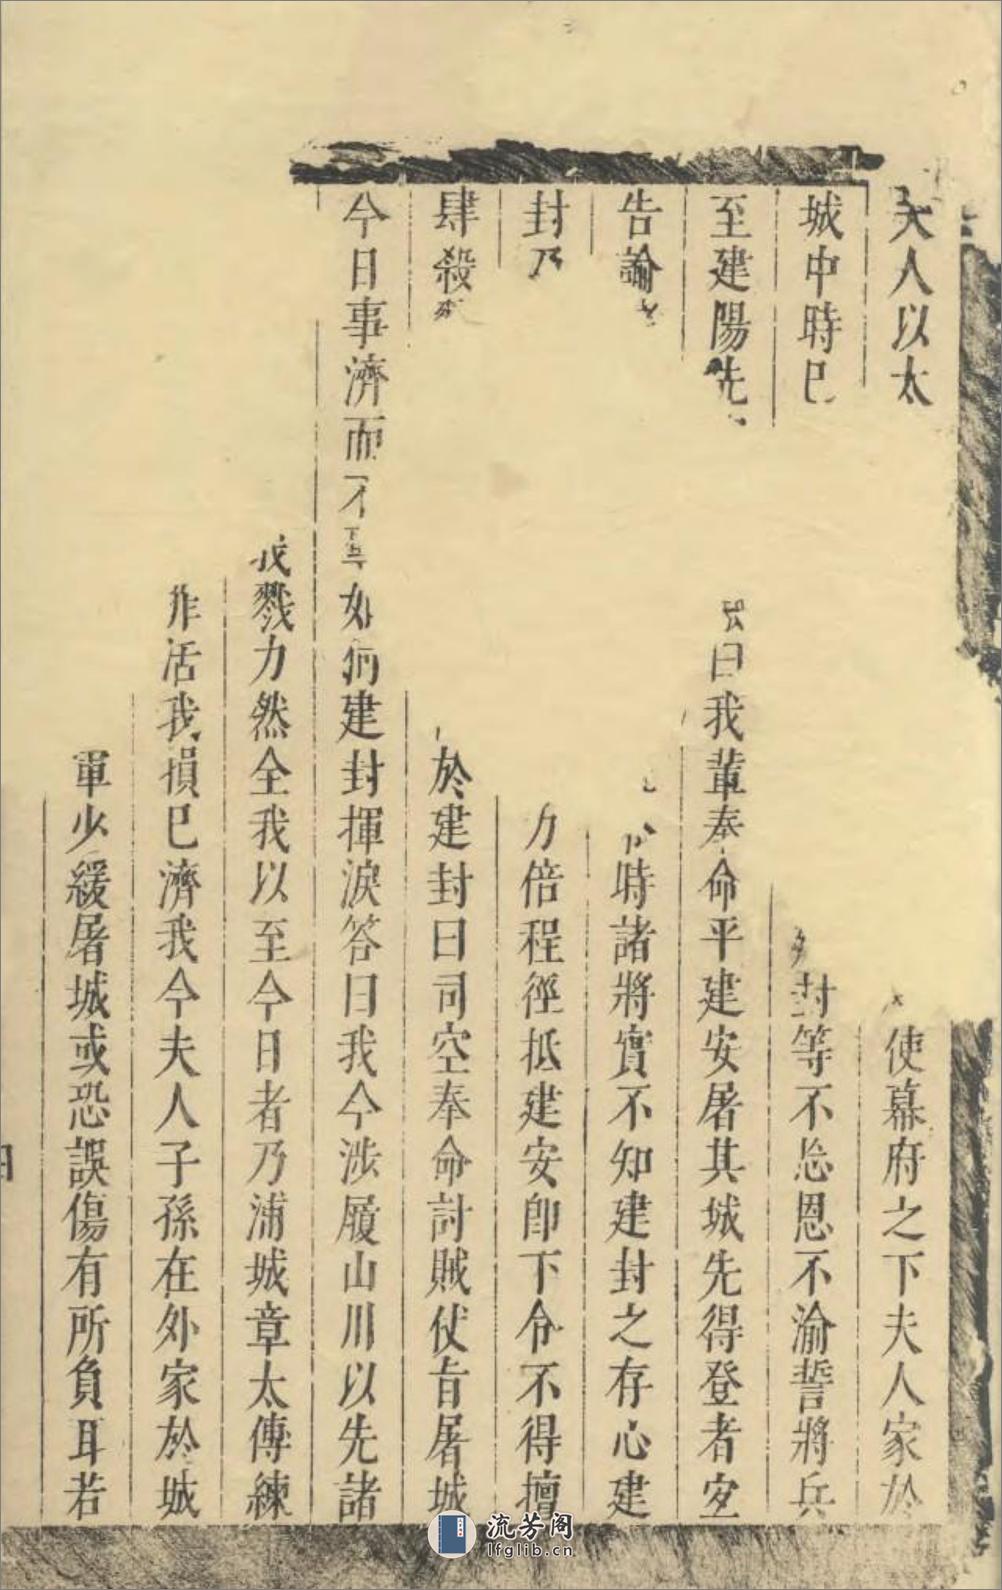 夫人以太使幕府之下夫人家於
城中時已封等不忘恩不渝誓將兵
至建陽先曰我輩奉命平建安屠其城先得登者安
告諭時諸將實不知建封之存心建
封乃力倍程徑抵建安即下令不得擅
肆殺於建封曰司空奉命討賊仗旨屠城
今日事濟而不如建封揮淚答曰我今涉履山川以先諸
戮力然全我以至今日者乃浦城章太傅練
活我損已濟我今夫人子孫在外家於城
軍少緩屠城或恐誤傷有所負耳若
流芳阁
lfglib.cn